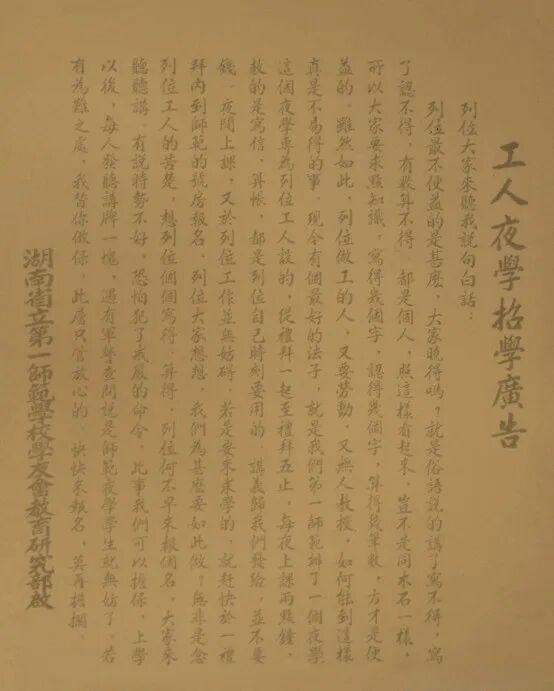 工人夜學招學廣告
列位大家來聽我說句白話：
列位最不便益的是甚麼，大家曉得嗎？就是俗語說的講了寫不得，寫
了認不得，有數算不得，都是個人，照這樣看起來，豈不是同木石一樣，
所以大家要求點知識，寫得幾個字，認得幾個字，算得幾筆數，方才是便
益的。雖然如此，列位做工的人，又要勞動，又無人教授，如何能到這樣
真是不易得的事。現今有個最好的法子，就是我們第一師範辦了一個夜學
這個夜學專為列位工人設的，從禮拜一起至禮拜五止，每夜上課兩點鐘，
教的是寫信、算帳，都是列位自己時刻要用的。講義歸我們發給，並不要
錢。夜間上課，又於列位工作並無妨碍。若是要來求學的，就赶快於一禮
拜內到師範的號房報名。列位大家想想，我們為甚麼要如此做？無非是念
列位工人的苦楚，想列位個個寫得、算得。列位何不早來報個名，大家來
聽聽講。有說時勢不好，恐怕犯了戒嚴的命令，此事我們可以擔保，上學
以後，每人發聽講牌一塊，遇有軍警查問說是師範夜學學生就無妨了。若
有為難之處，我替你做保，此層只管放心的，快快來報名，莫再擔擱。
湖南省立第一師範學校學友會教育研究部啟